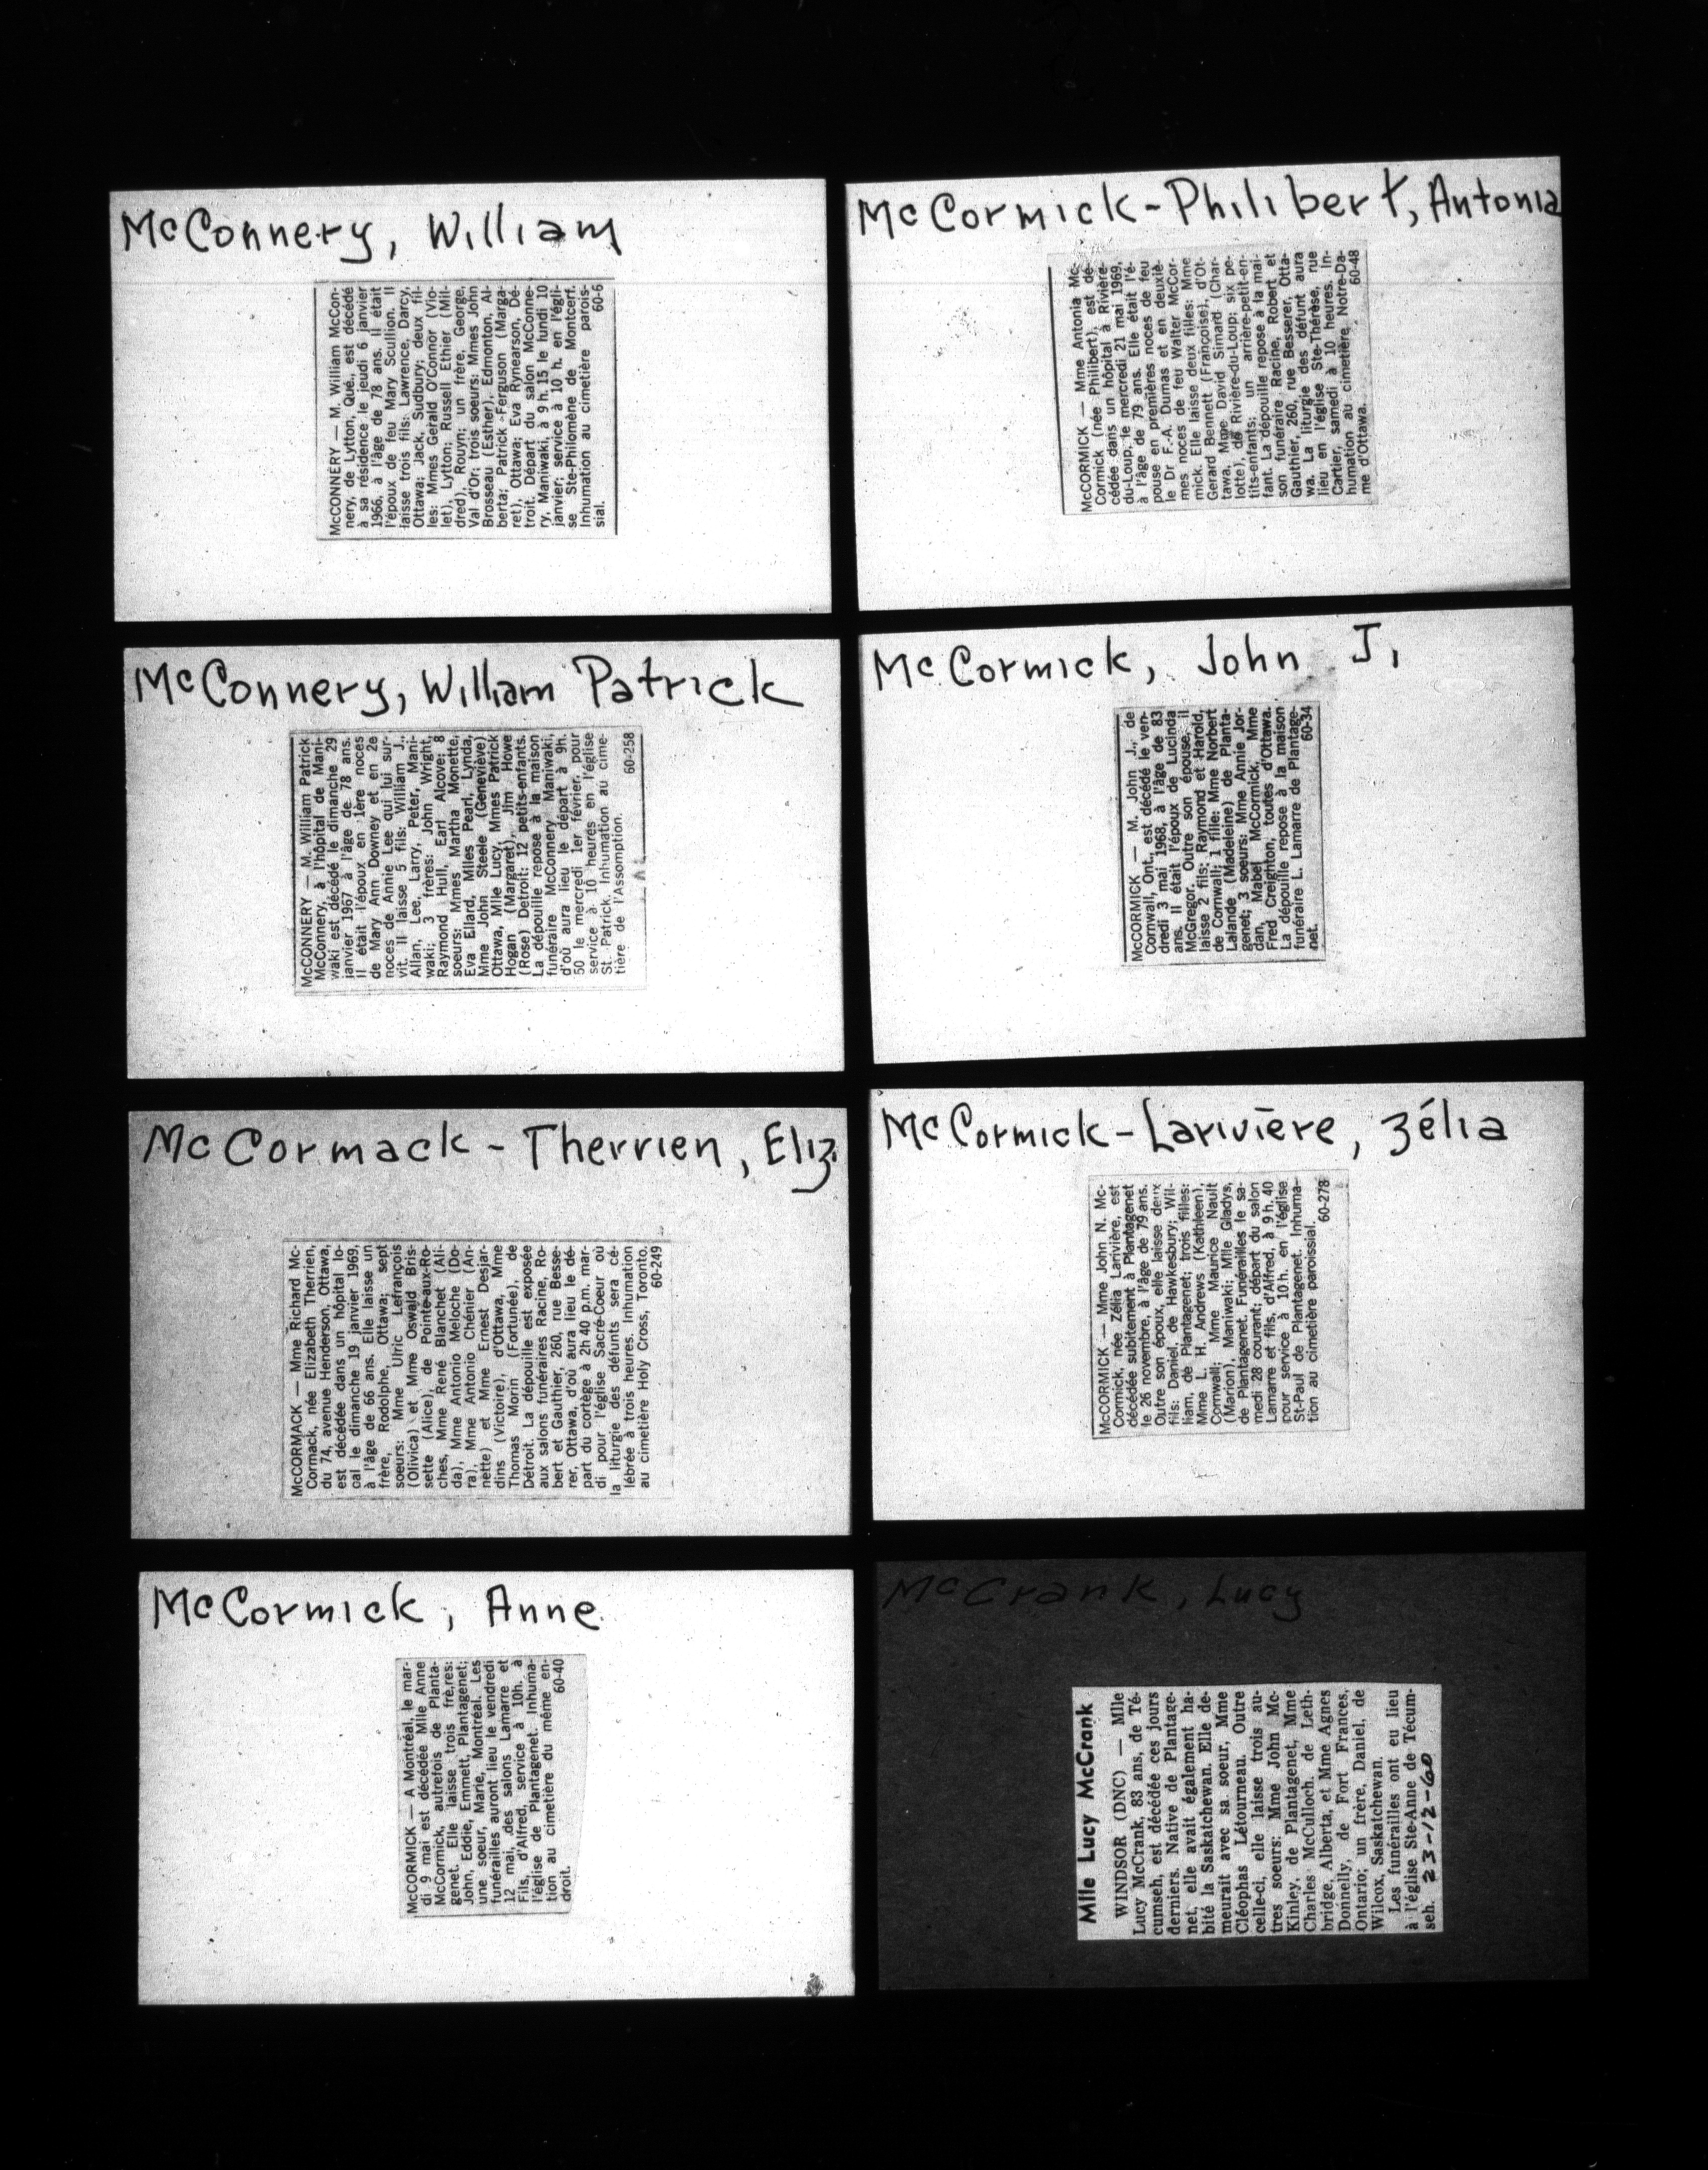 McConnery, William
McCONNERY — M. William McCon-
nery, de Lytton, Qué., est décédé
à sa résidence le jeudi 6 janvier
1966, à l'âge de 78 ans. Il était
l'époux de feu Mary Scullion. Il
laisse trois fils: Lawrence, Darcy,
Ottawa; Jack, Sudbury; deux fil-
les: Mmes Gerald O'Connor (Vio-
let), Lytton; Russell Ethier (Mil-
dred), Rouyn; un frère, George,
Val d'Or; trois soeurs: Mmes John
Brosseau (Esther), Edmonton, Al-
berta; Patrick Ferguson (Marga-
ret), Ottawa; Eva Rynearson, Dé-
troit. Départ du salon McConne-
ry, Maniwaki, à 9 h. 15 le lundi 10
janvier; service à 10 h. en l'égli-
se Ste-Philomène de Montcerf.
Inhumation au cimetière parois-
sial. 60-6
McConnery, William Patrick
McCONNERY — M. William Patrick
McConnery, à l'hôpital de Mani-
waki est décédé le dimanche 29
janvier 1967 à l'âge de 78 ans.
Il était l'époux en 1ère noces
de Mary Ann Downey et en 2e
noces de Annie Lee qui lui sur-
vit. Il laisse 5 fils: William J.,
Allan, Lee, Larry, Peter, Mani-
waki; 3 frères: John Wright,
Raymond Hull, Earl Alcove; 8
soeurs: Mmes Martha Monette,
Eva Ellard, Milles Pearl, Lynda,
Mme John Steele (Geneviève)
Ottawa, Mlle Lucy, Mmes Patrick
Hogan (Margaret), Jim Howe
(Rose) Detroit: 12 petits-enfants.
La dépouille repose à la maison
funéraire McConnery Maniwaki,
d'où aura lieu le départ à 9h.
50 le mercredi 1er février, pour
service à 10 heures en l'église
St. Patrick. Inhumation au cime-
tière de l'Assomption. 60-258
McCormack-Therrien, Eliz.
McCORMACK — Mme Richard Mc-
Cormack, née Elizabeth Therrien,
du 74, avenue Henderson, Ottawa,
est décédée dans un hôpital lo-
cal le dimanche 19 janvier 1969,
à l'âge de 66 ans. Elle laisse un
frère, Rodolphe, Ottawa; sept
soeurs: Mme Ulric Lefrançois
(Olivica) et Mme Oswald Bris-
sette (Alice), de Pointe-aux-Ro-
ches, Mme René Blanchet (Ali-
da), Mme Antonio Meloche (Do-
ra), Mme Antonio Chénier (An-
nette) et Mme Ernest Desjar-
dins (Victoire), d'Ottawa, Mme
Thomas Morin (Fortunée), de
Détroit. La dépouille est exposée
aux salons funéraires Racine, Ro-
bert et Gauthier, 260, rue Besse-
rer, Ottawa, d'où aura lieu le dé-
part du cortège à 2h 40 p.m. mar-
di pour l'église Sacré-Coeur où
la liturgie des défunts sera cé-
lébrée à trois heures. Inhumation
au cimetière Holy Cross, Toronto.
60-249
McCormick, Anne
McCORMICK — A Montréal, le mar-
di 9 mai est décédée Mlle Anne
McCormick, autrefois de Planta-
genet. Elle laisse trois frères:
John, Eddie, Emmett, Plantagenet;
une soeur, Marie, Montréal. Les
funérailles auront lieu le vendredi
12 mai, des salons Lamarre et
Fils, d'Alfred, service à 10h. à
l'église de Plantagenet. Inhuma-
tion au cimetière du même en-
droit. 60-40
McCormick-Philibert, Antonia
McCORMICK — Mme Antonia Mc-
Cormick (née Philibert), est dé-
cédée dans un hôpital à Rivière-
du-Loup, le mercredi 21 mai 1969,
à l'âge de 79 ans. Elle était l'é-
pouse en premières noces de feu
le Dr F.-A. Dumas et en deuxiè-
mes noces de feu Walter McCor-
mick. Elle laisse deux filles: Mme
Gerard Bennett (Françoise), d'Ot-
tawa, Mme David Simard (Char-
lotte), de Rivière-du-Loup; six pe-
tits-enfants; un arrière-petit-en-
fant. La dépouille repose à la mai-
son funéraire Racine, Robert et
Gauthier, 260, rue Besserer, Otta-
wa. La liturgie des défunt aura
lieu en l'église Ste-Thérèse, rue
Cartier, samedi à 10 heures. In-
humation au cimetière Notre-Da-
me d'Ottawa. 60-48
McCormick, John J.
McCORMICK — M. John J., de
Cornwall, Ont., est décédé le ven-
dredi 3 mai 1968, à l'âge de 83
ans. Il était l'époux de Lucinda
McGregor. Outre son épouse, il
laisse 2 fils: Raymond et Harold,
de Cornwall; 1 fille: Mme Norbert
Lalande (Madeleine) de Planta-
genet; 3 soeurs: Mme Annie Jor-
dan, Mabel McCormick, Mme
Fred Creighton, toutes d'Ottawa.
La dépouille repose à la maison
funéraire L. Lamarre de Plantage-
net. 60-34
McCormick-Larivière, Zélia
McCORMICK — Mme John N. Mc-
Cormick, née Zélia Larivière, est
décédée subitement à Plantagenet
le 26 novembre, à l'âge de 79 ans.
Outre son époux, elle laisse deux
fils: Daniel, de Hawkesbury; Wil-
liam, de Plantagenet; trois filles:
Mme L. H. Andrews (Kathleen),
Cornwall; Mme Maurice Nault
(Marion), Maniwaki; Mlle Gladys,
de Plantagenet. Funérailles le sa-
medi 28 courant; départ du salon
Lamarre et fils, d'Alfred, à 9 h. 40
pour service à 10 h. en l'église
St-Paul de Plantagenet. Inhuma-
tion au cimetière paroissial.
60-278
McCrank, Lucy
Mlle Lucy McCrank
WINDSOR (DNC) — Mlle
Lucy McCrank, 83 ans, de Té-
cumseh, est décédée ces jours
derniers. Native de Plantage-
net, elle avait également ha-
bité la Saskatchewan. Elle de-
meurait avec sa soeur, Mme
Cléophas Létourneau. Outre
celle-ci, elle laisse trois au-
tres soeurs: Mme John Mc-
Kinley, de Plantagenet, Mme
Charles McCulloch, de Leth-
bridge, Alberta, et Mme Agnes
Donnelly, de Fort Frances,
Ontario; un frère, Daniel, de
Wilcox, Saskatchewan.
Les funérailles ont eu lieu
à l'église Ste-Anne de Técum-
seh. 23-12-60